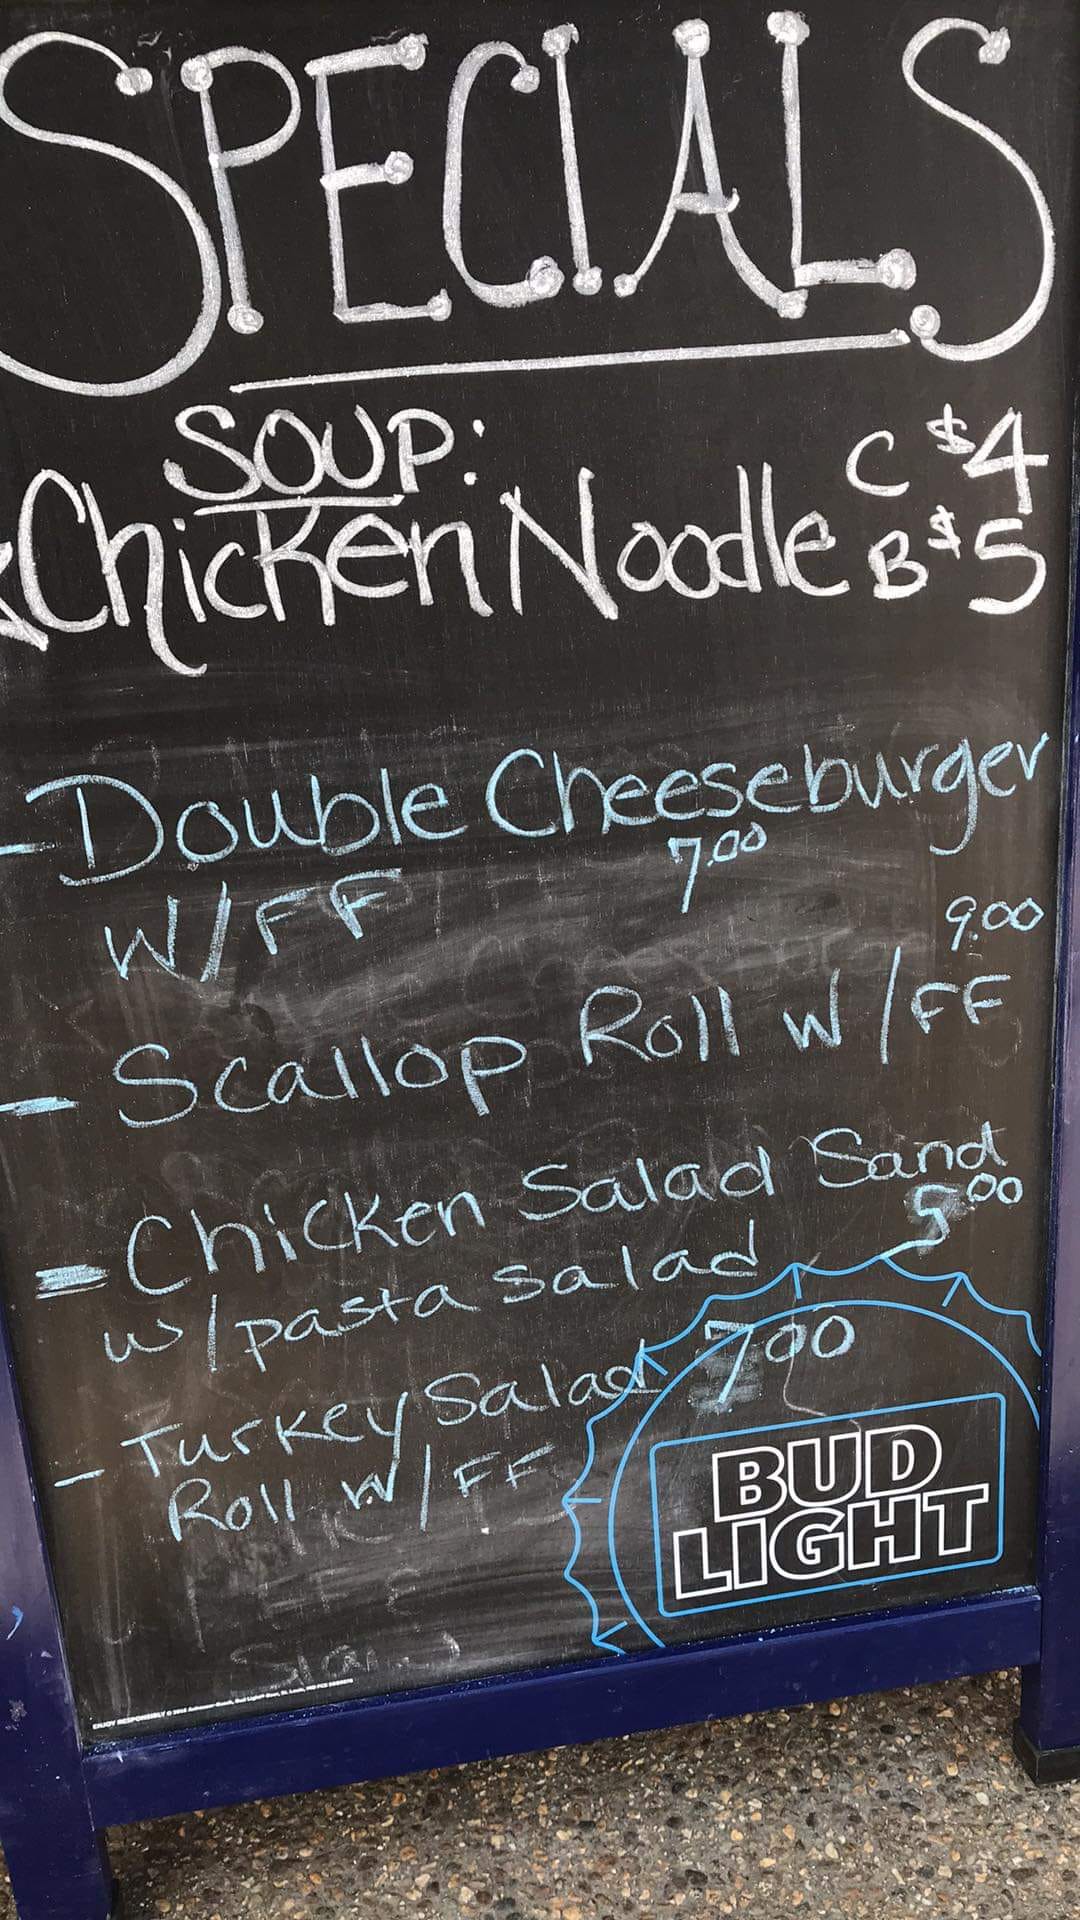 SPECIALS
SOUP: C $4
Chicken Noodle B $5
- Double Cheeseburger
W/FF 7.00
9.00
- Scallop Roll w/FF
- Chicken Salad Sand
w/pasta salad 5.00
- Turkey Salad 7.00
Roll w/FF
BUD
LIGHT
ENJOY RESPONSIBLY